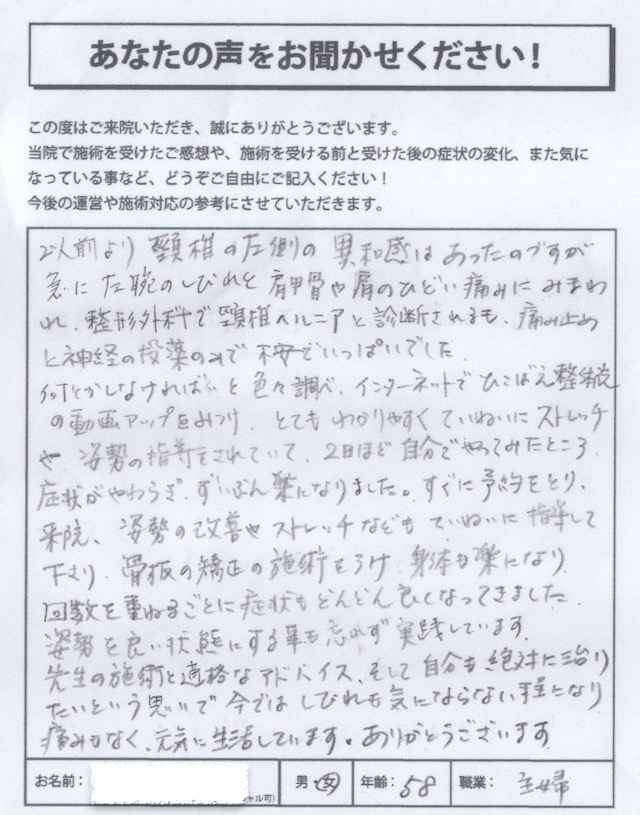 あなたの声をお聞かせください！
この度はご来院いただき、誠にありがとうございます。
当院で施術を受けたご感想や、施術を受ける前と受けた後の症状の変化、また気に
なっている事など、どうぞご自由にご記入ください！
今後の運営や施術対応の参考にさせていただきます。
以前より 頸椎の左側の異和感はあったのですが
急に左腕のしびれと肩甲骨や肩のひどい痛みにみまわ
れ、整形外科で頸椎ヘルニアと診断されるも、痛み止め
と神経の投薬のみで不安でいっぱいでした。
何とかしなければ と色々調べ、インターネットでひこばえ整体院
の動画アップをみつけ、とてもわかりやすくていねいにストレッチ
や 姿勢の指導をされていて、2日ほど自分でやってみたところ、
症状がやわらぎ、ずいぶん楽になりました。すぐに予約をとり、
来院、姿勢の改善やストレッチなどもていねいに指導して
下さり、骨板の矯正の施術をうけ、身体も楽になり、
回数を重ねるごとに症状もどんどん良くなってきました。
姿勢を良い状態にする事も忘れず実践しています。
先生の施術と適格なアドバイス、そして自分も絶対に治り
たいという思いで今ではしびれも気にならない程になり
痛みもなく、元気に生活しています。ありがとうございます
お名前：
ャル可)
男・女
年齢：58
職業：主婦